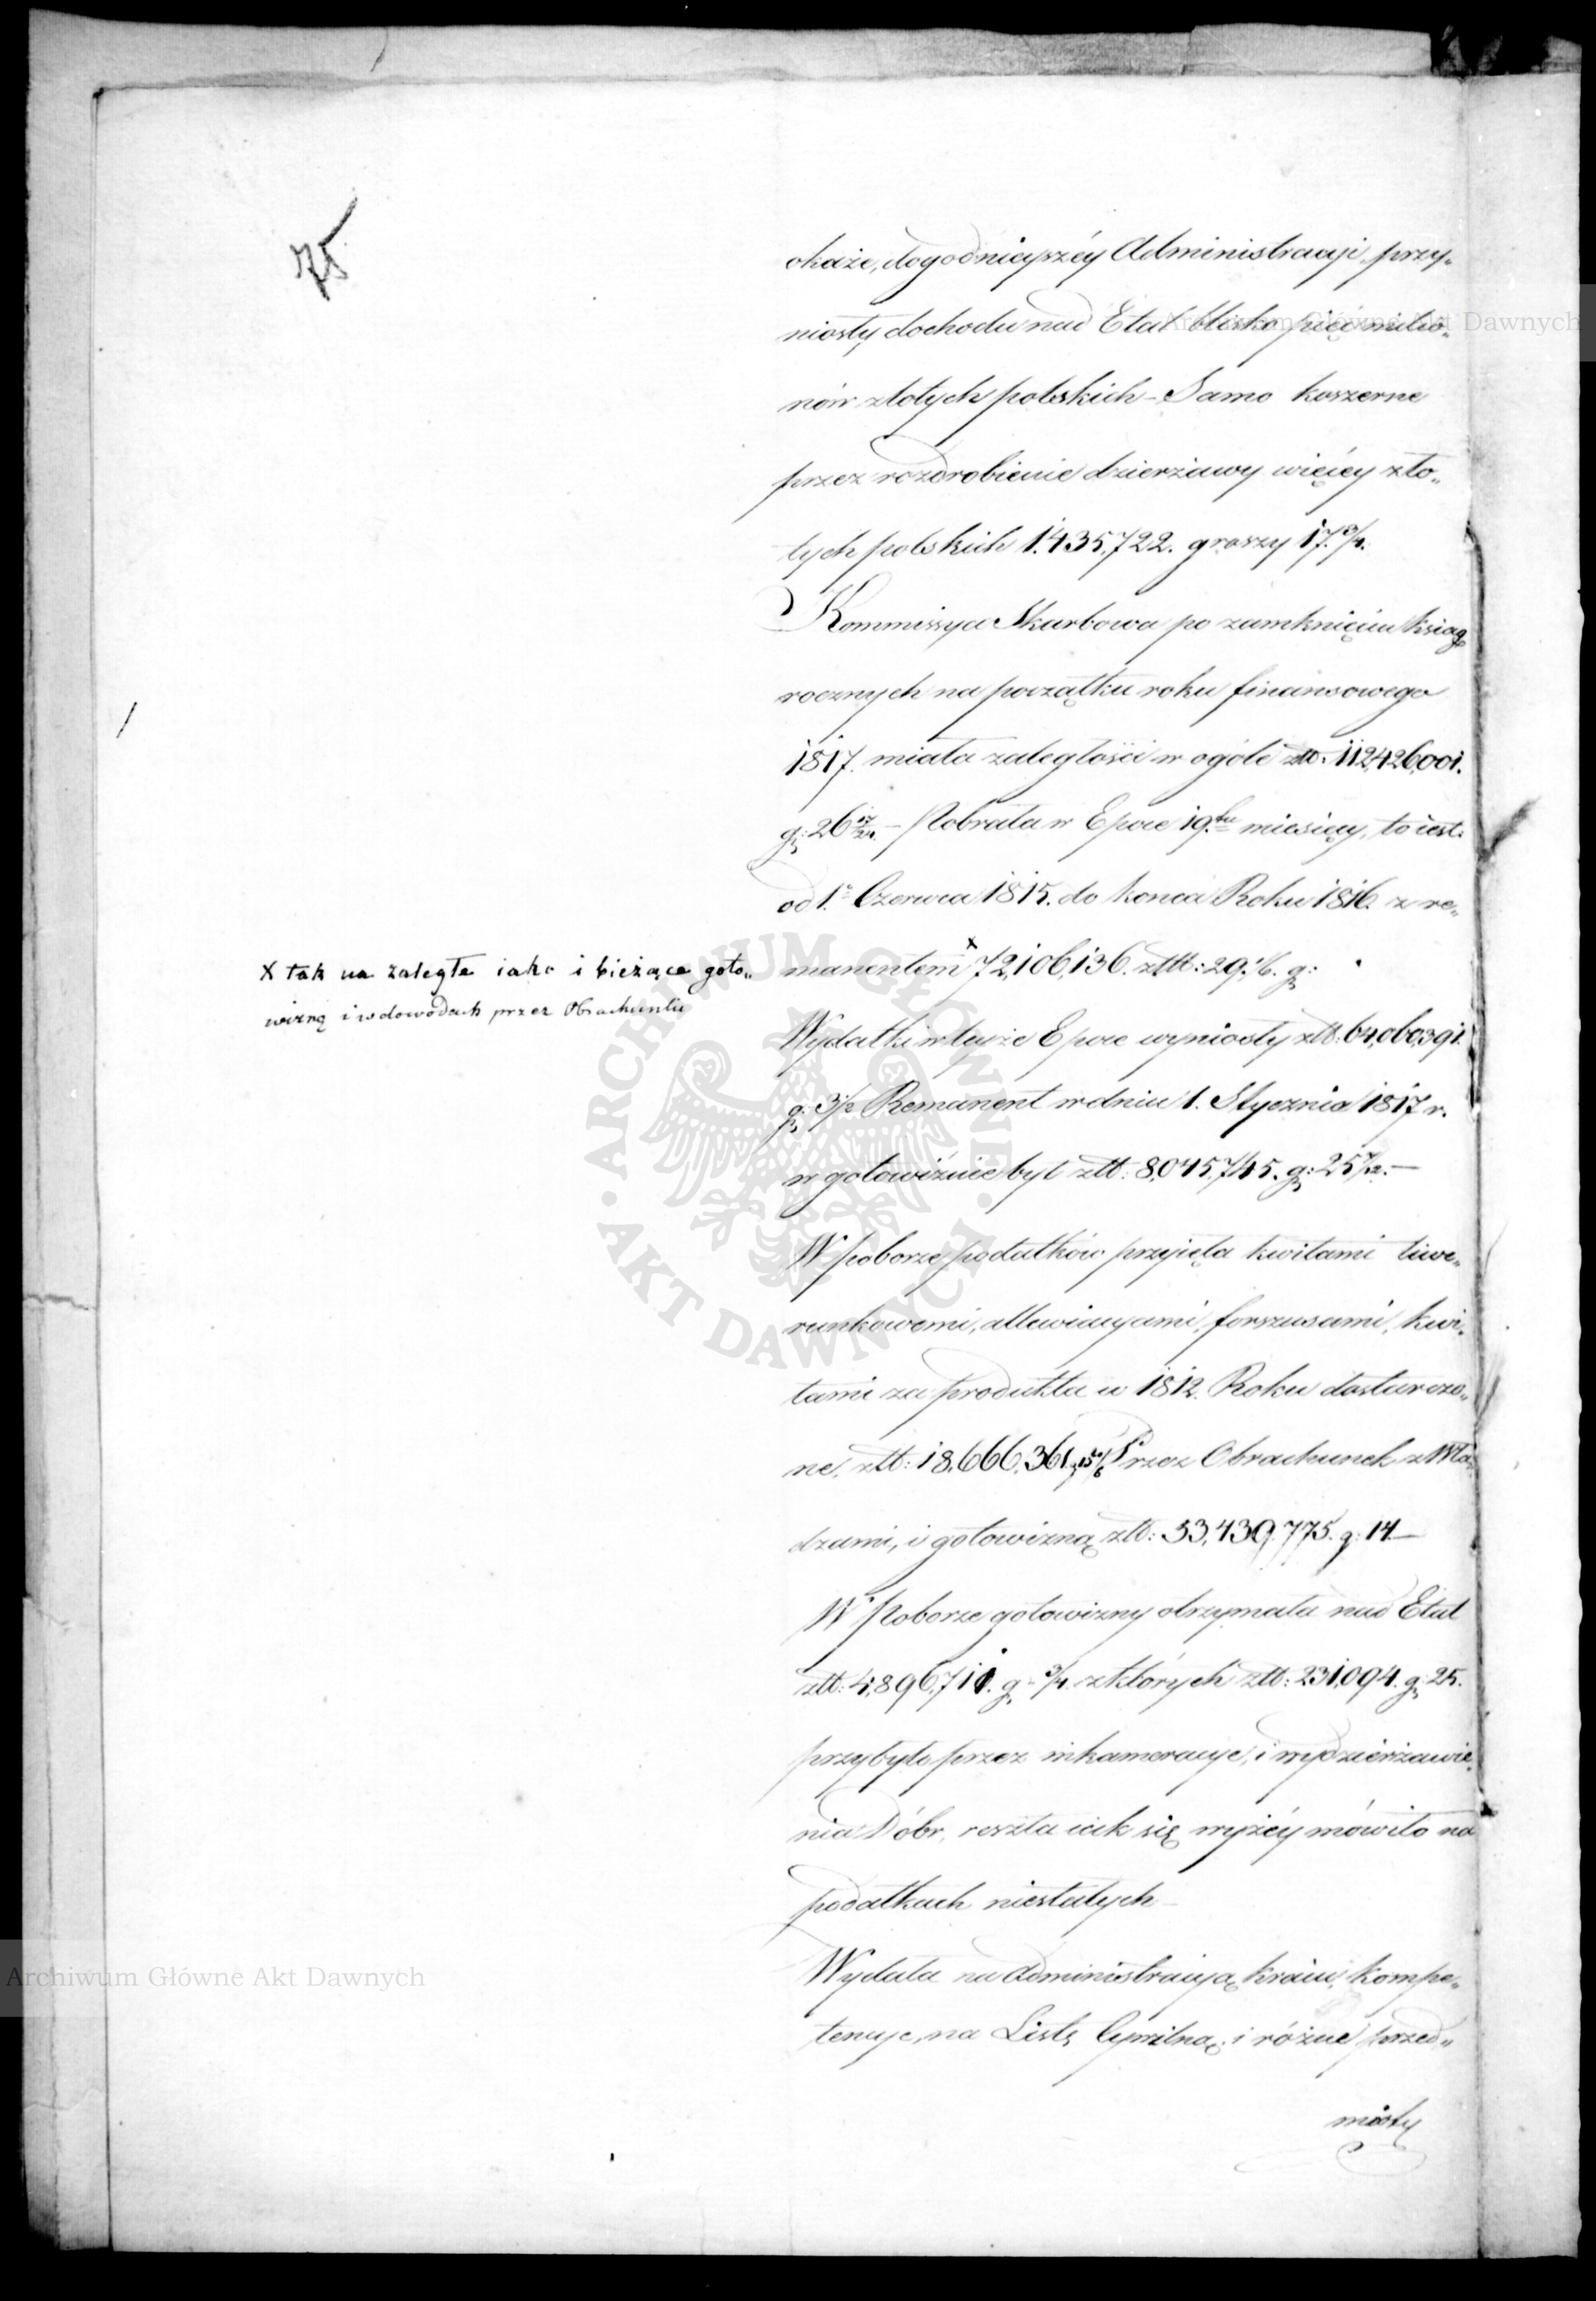 75
okaże, dogodnieyszéy Administracyi, przy„
niosły dochodu nad Etat blisko pięć milio„
nów złotych polskich – Samo koszerne
przez rozdrobienie dzierżawy więcey zło„
tych polskich 1.435,722. groszy 17.¾.
Kommissya Skarbowa po zamknięciu ksiąg
rocznych na początku roku finansowego
1817. miała zaległości w ogóle złł: 112,426,001.
g: 26 17/24. – Pobrała w Epoce 19.stu miesięcy, to iest:
od 1.º Czerwca 1815. do końca Roku 1816. z re„
manentem x 72,106,136. złłł: 29.⅙. g:
x tak na zaległe iako i bieżące goto„
wizną i w dowodach przez Obrachunki
Wydatki w teyże Epoce wyniosły złł: 64,060,391.
g: 3½ Remanent w dniu 1. Stycznia 1817 r.
w gotowiźnie był złł: 8,045,745. g: 25 7/12. –
W poborze podatków przyięła kwitami liwe„
runkowemi, allewiacyami, forszusami, kwi„
tami za produkta w 1812. Roku dostarczo„
ne, złł: 18,666,361. g: 15⅙ Przez Obrachunek z Wła„
dzami, i gotowizną złł: 53,439,775. g: 14. –
W Poborze gotowizny otrzymała nad Etat
złł: 4,896,711. g: – ¾. z których złł: 231,094. g: 25.
przybyło przez inkameracye, i wydzierżawie„
nia Dóbr, reszta iak się wyżéy mówiło na
podatkach niestałych –
Wydała na Administracyą kraiu, kompe„
tencye, na Listę Cywilną, i różne przed„
mioty
Archiwum Główne Akt Dawnych
Archiwum Główne Akt Dawnych
ARCHIWUM GŁÓWNE · AKT DAWNYCH ·